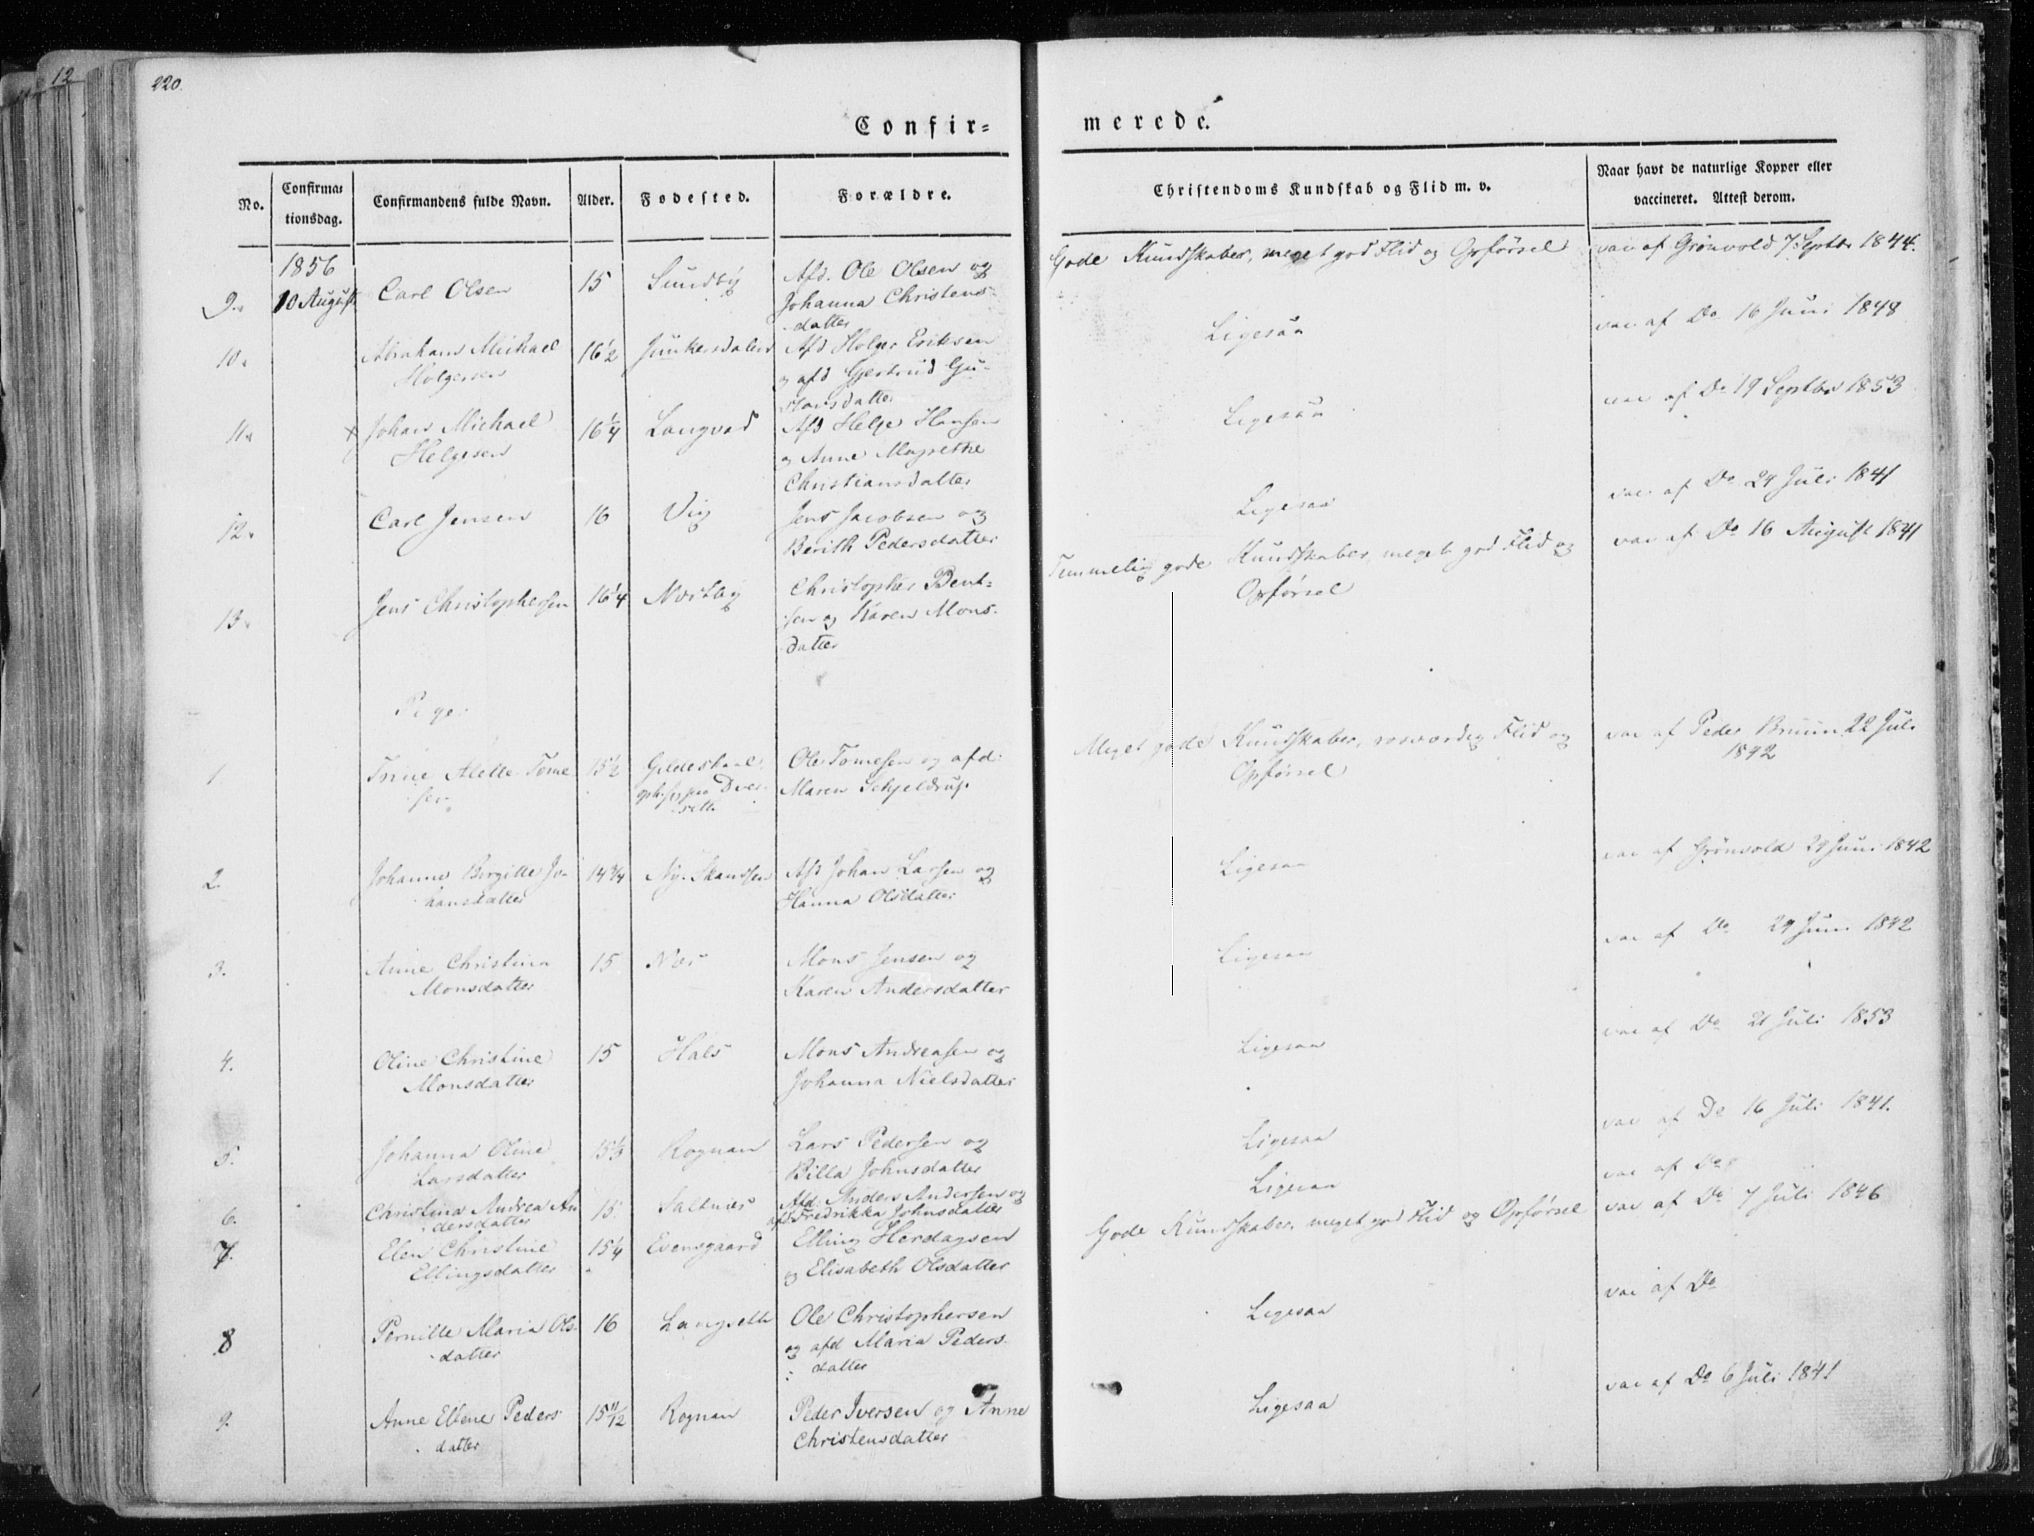 12
220.
Confir=
merede.
No.
Confirma=
tionsdag.
Confirmandens fulde Navn.
Alder.
Fødested.
Forældre.
Christendoms Kundskab og Flid m. v.
Naar havt de naturlige Kopper eller
vaccineret. Attest derom.
1856
9. 10 August Carl Olsen 15 Sundby Afd. Ole Olsen og
Johanna Christens-
datter
Gode Kundskaber, meget god Flid og Opførsel
vac af Grønvold 7 Septbr 1844.
10. Abraham Michael 16½ Junkersdalen Afd Holger Eriksen
Holgersen og afd Gjertrud Gu-
stavsdatter
Ligesaa
vac af Do 16 Juni 1848
11. x Johan Michael 16¼ Langvad Afd Helge Hansen
Helgesen og Anne Magrethe
Christiansdatter
Ligesaa
vac af Do 19 Septbr 1853
12. Carl Jensen 16 Vig Jens Jacobsen og
Berith Pedersdatter
Ligesaa
vac af Do 24 Juli 1841
13. Jens Christophersen 16¼ Nestby Christopher Bent-
sen og Karen Mons-
datter
Temmelig gode Kundskaber, meget god Flid og
Opførsel
vac af Do 16 August 1841
Piger
1. Trine Alette Tome 15½ Gildeskaal
sen Ole Tomesen og afd.
Maren Schjeldrup
Meget gode Kundskaber, rosværdig Flid og
Opførsel
vac af Peder Bruun 22 Juli
1842
2. Johanne Birgitte Jo- 14¾ Ny-Skandsen Afd Johan Larsen og
hansdatter Hanna Olsdatter
Ligesaa
vac af Grønvold 29 Juni 1842
3. Anne Christina 15 Næs Mons Jensen og
Monsdatter Karen Andersdatter
Ligesaa
vac af Do 29 Juni 1842
4. Oline Christine 15 Hals Mons Andreasen og
Monsdatter Johanna Nielsdatter
Ligesaa
vac af Do 21 Juli 1853
5. Johanna Oline 15⅓ Rognan Lars Pedersen og
Larsdatter Billa Johnsdatter
Ligesaa
vac af Do 16 Juli 1841.
6. Christina Andrea An 15 Saltnes Afd. Anders Andersen og
dersdatter afd Fredrikka Johnsdatter
Ligesaa
vac af Do
7. Elen Christine 15¼ Evensgaard Elling Herdagsen
Ellingsdatter og Elisabeth Olsdatter
Gode Kundskaber, meget god Flid og Opførsel
vac af Do 7 Juli 1846
8 Pernille Maria Ols- 16 Langseth Ole Christophersen
datter og afd Maria Peders-
datter
Ligesaa
vac af Do
9. Anne Ellene Peders 15 11/12 Rognan Peder Iversen og Anne
datter Christensdatter
Ligesaa
vac af Do 6 Juli 1841